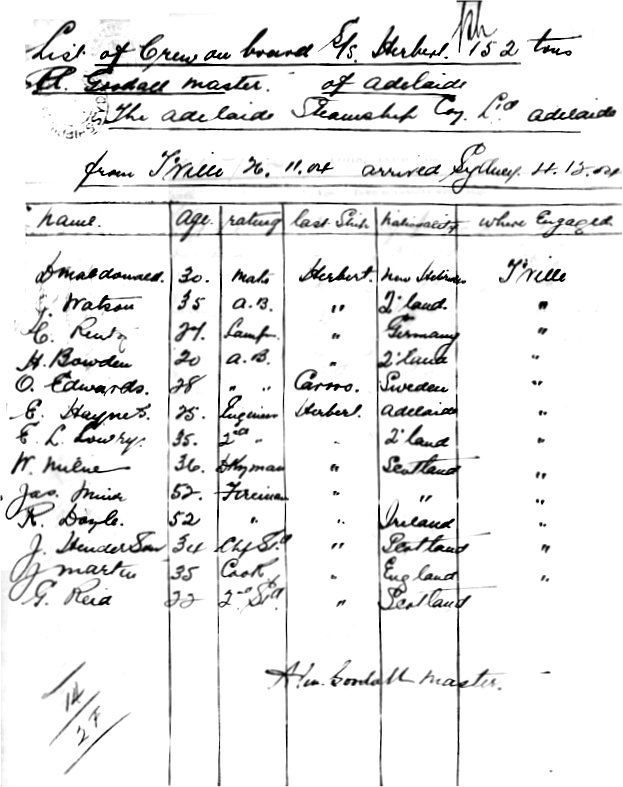 List of Crew on board S/S Herbert. 152 tons
A. Goodall master. of Adelaide
The Adelaide Steamship Coy. Ltd Adelaide
from T'Ville 26.11.04 arrived Sydney. 4.12.04
name. age. rating last Ship nationality where Engaged
D Macdonald. 30. mate Herbert. New Hebrides T'Ville
J. Watson 35 A.B. " Q'land. "
27. Lamp " Germany "
H. Bowden 20 A.B. " Q'land "
O. Edwards. 28 " " Sweden "
E. Haynes. 25. Engineer Herbert. Adelaide "
E. L. Lowry. 35. 2nd " " Q'land "
W. Milne 36. Dkyman " Scotland "
Jas. 52. Fireman " " "
R. Doyle. 52 " " Ireland "
J. Henderson 34 Chf Std " Scotland "
J Martin 35 Cook " England "
G. Reid 22 2nd Std " Scotland
Alex. Goodall Master.
14
27